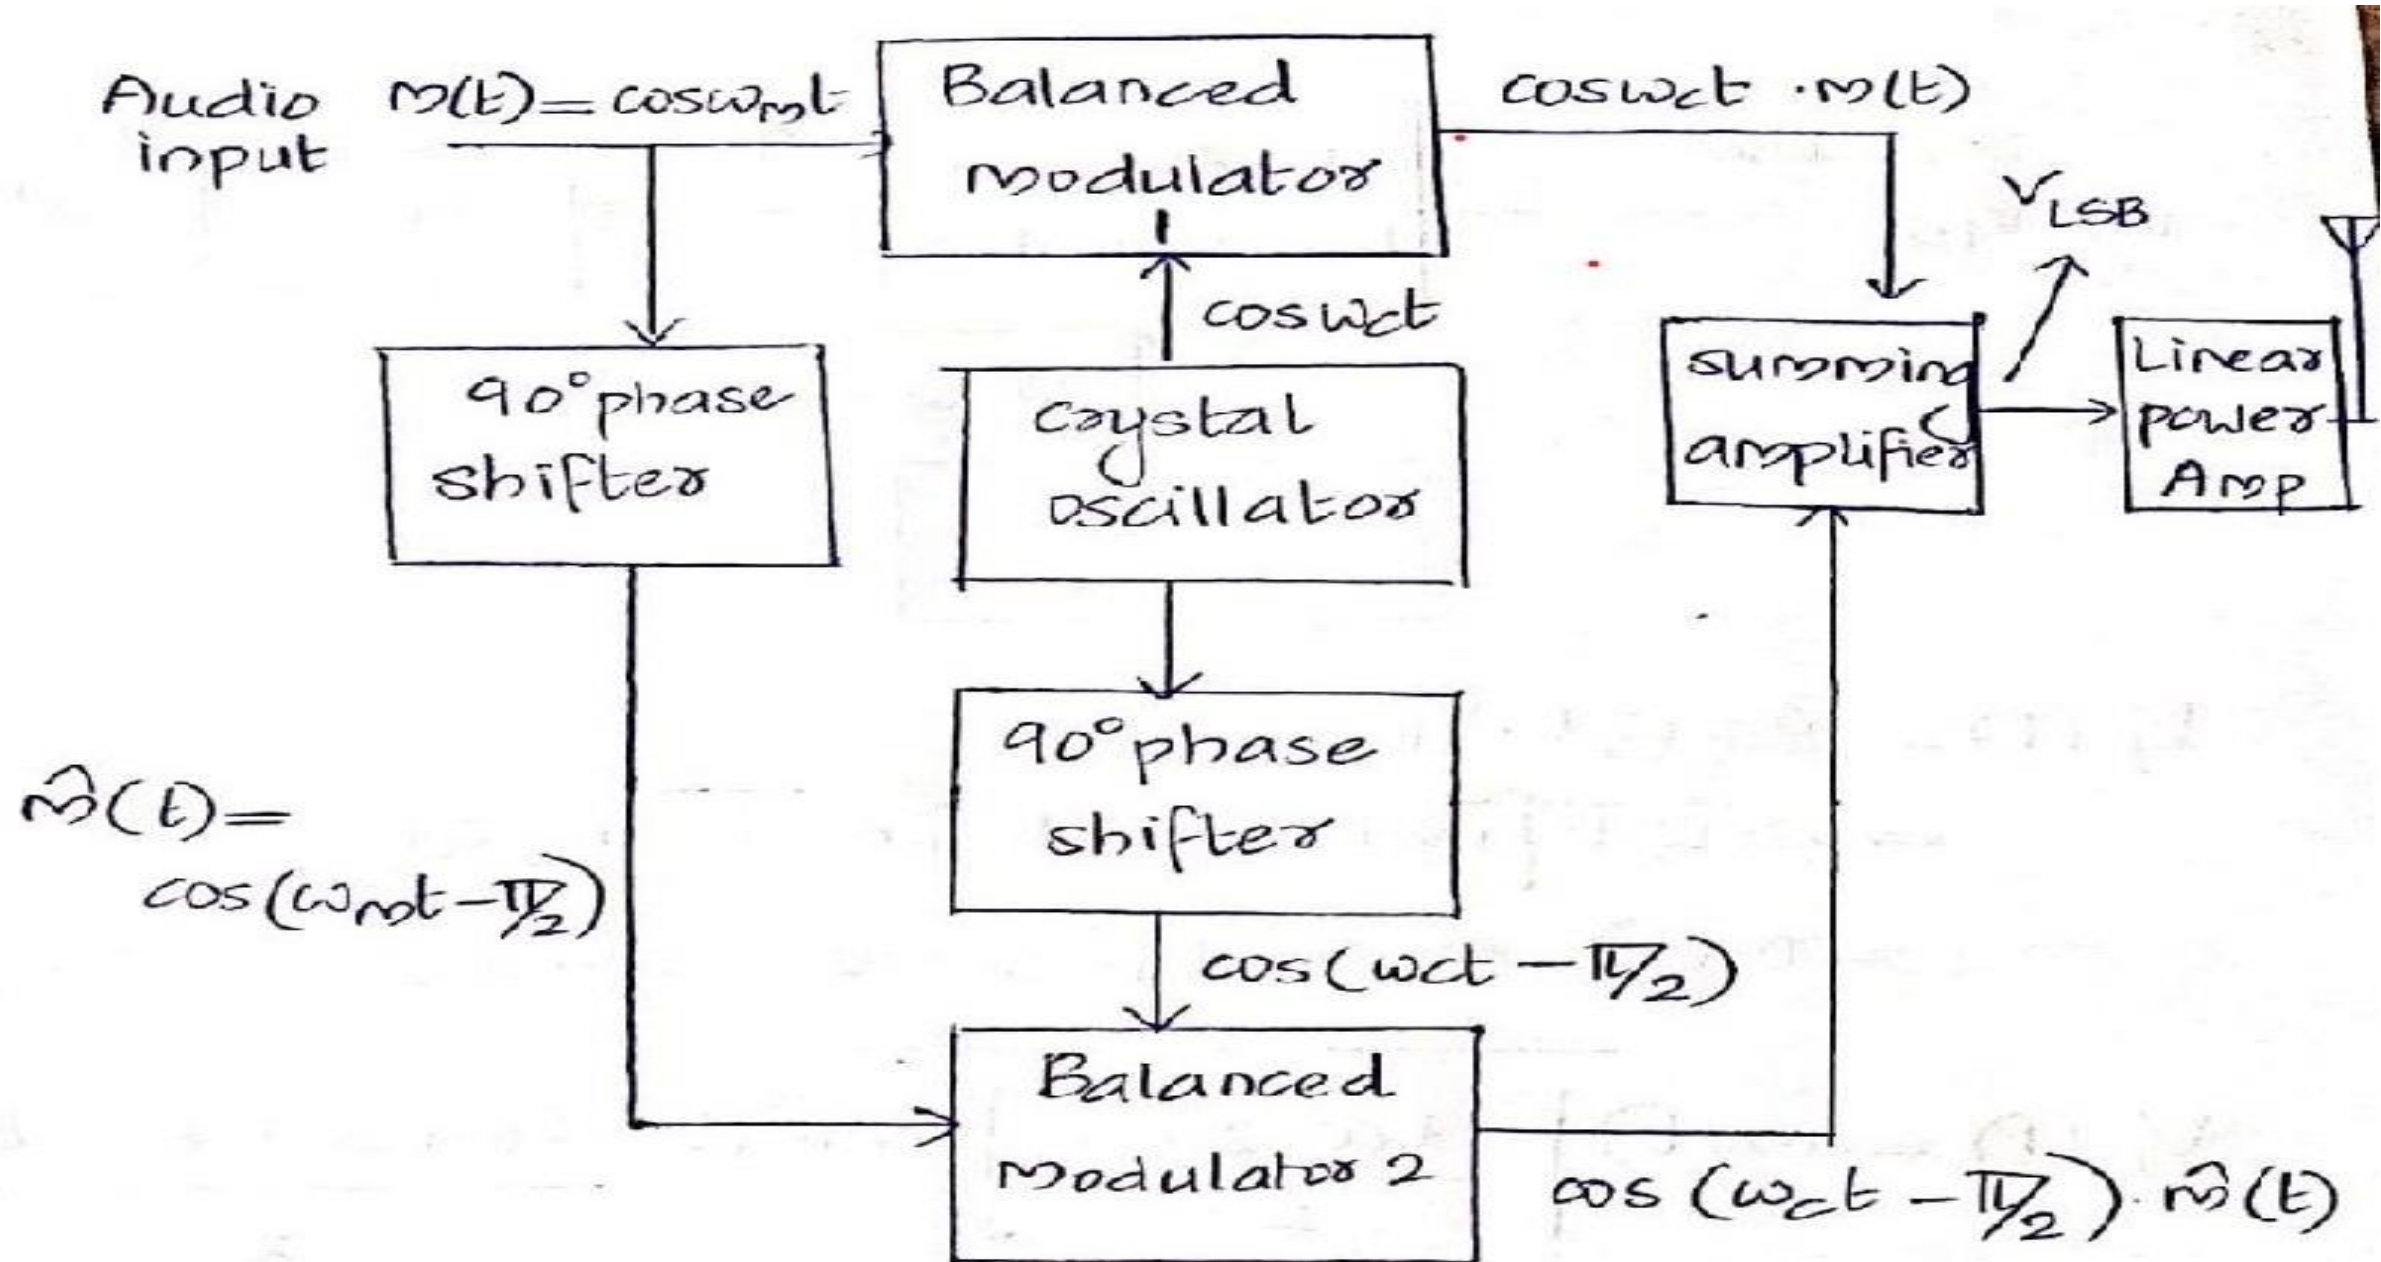 Audio
input
m(t)=cosωmt
Balanced
modulator
1
cosωct .m(t)
VLSB
90° phase
shifter
cosωct
crystal
oscillator
summing
amplifier
Linear
power
Amp
90° phase
shifter
m̂(t)=
cos(ωmt-π/2)
cos(ωct-π/2)
Balanced
Modulator 2
cos(ωct-π/2).m̂(t)